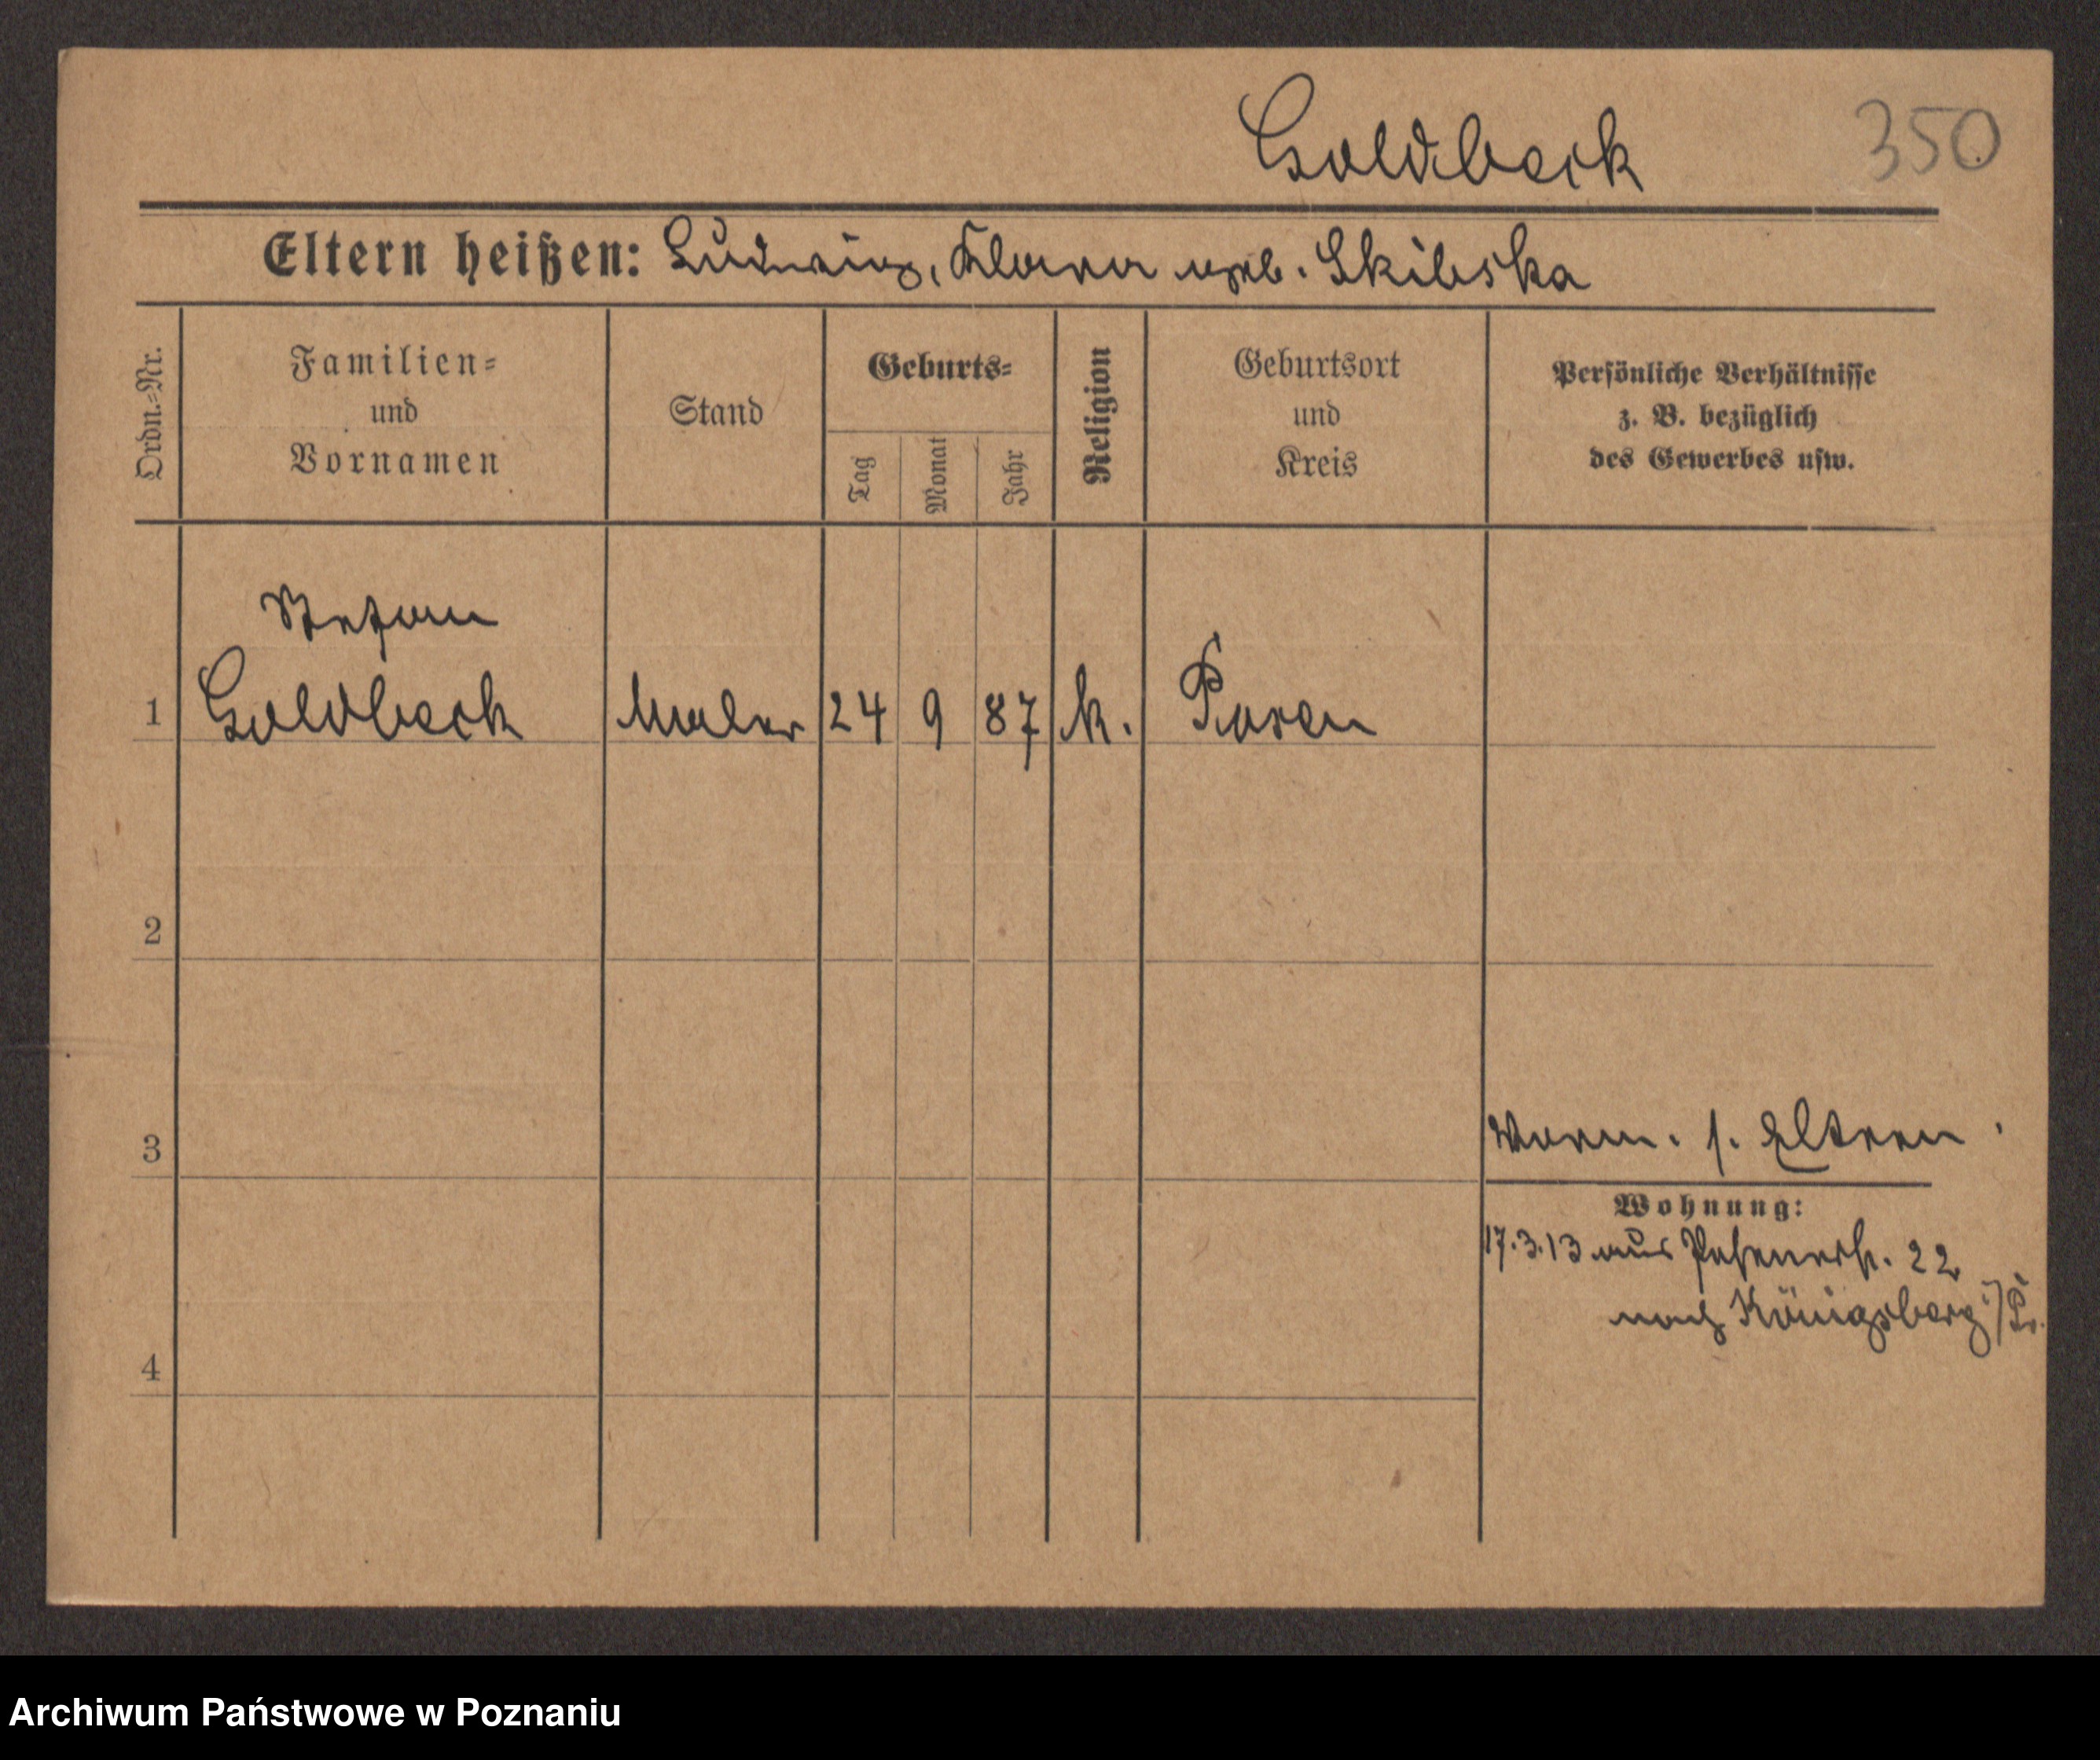 Goldbeck 350
Eltern heißen: Ludwig, Klara geb. Skibska
Ordn.-Nr.
Familien-
und
Vornamen
Stand
Geburts-
Tag
Monat
Jahr
Religion
Geburtsort
und
Kreis
Persönliche Verhältnisse
z. B. bezüglich
des Gewerbes usw.
Stefan
1 Goldbeck Maler 24 9 87 k. Posen
2
3
Vorm. s. Eltern.
Wohnung:
17.3.13 aus 22
nach Königsberg i/Pr.
4
Archiwum Państwowe w Poznaniu